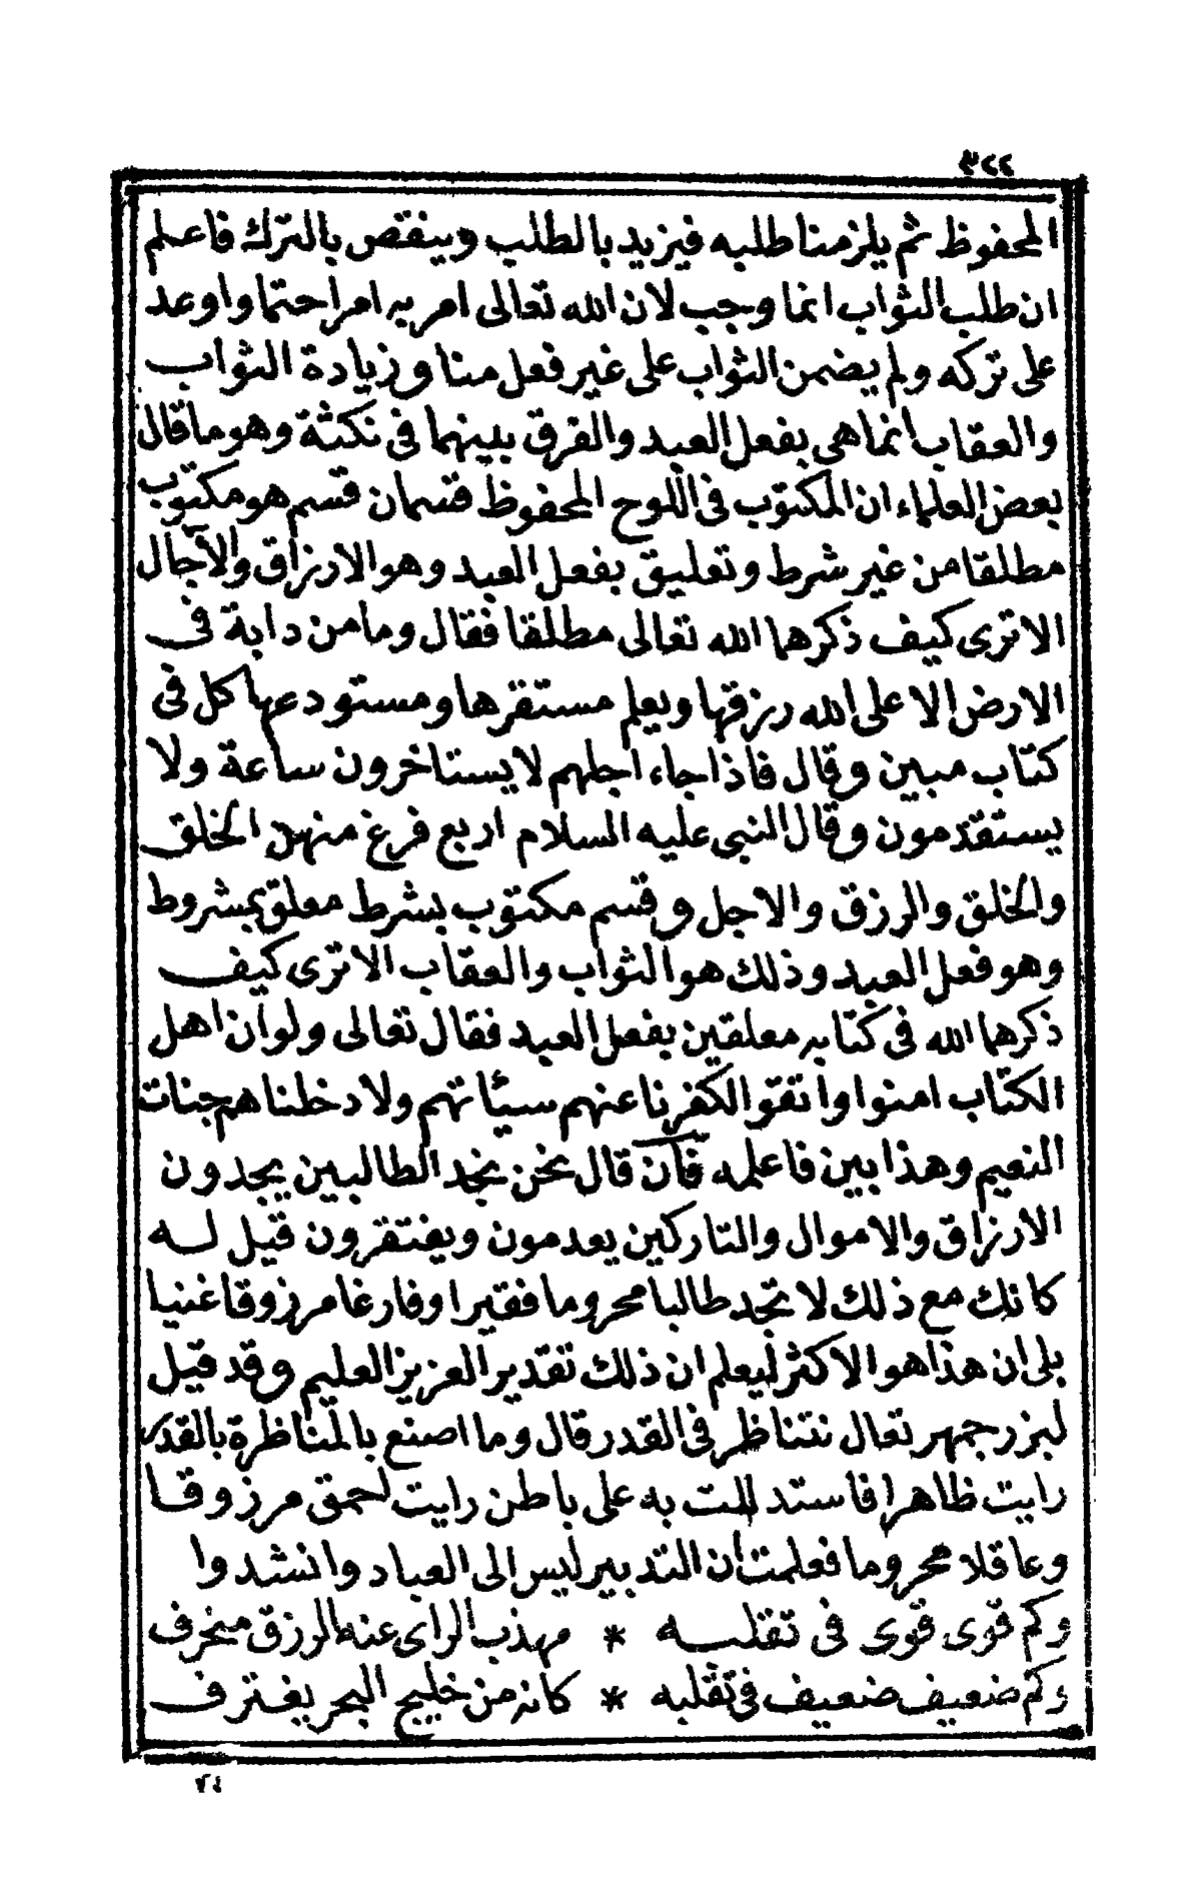 ٣٢٢
المحفوظ ثم يلزمنا طلبه فيزيد بالطلب وينقص بالترك فاعلم
ان طلب الثواب انما وجب لان الله تعالى امر به امرا حتما واوعد
على تركه ولم يضمن الثواب على غير فعل منا وزيادة الثواب
والعقاب انما هى بفعل العبد والفرق بينهما فى نكتة وهو ما قال
بعض العلماء ان المكتوب فى اللوح المحفوظ قسمان قسم هو مكتوب
مطلقا من غير شرط وتعليق بفعل العبد وهو الارزاق والآجال
الا ترى كيف ذكرهما الله تعالى مطلقا فقال وما من دابة فى
الارض الا على الله رزقها ويعلم مستقرها ومستودعها كل فى
كتاب مبين وقال فاذا جاء اجلهم لا يستاخرون ساعة ولا
يستقدمون وقال النبى عليه السلام اربع فرغ منهن الخلق
والخلق والرزق والاجل وقسم مكتوب بشرط معلق بمشروط
وهو فعل العبد وذلك هو الثواب والعقاب الا ترى كيف
ذكرهما الله فى كتابه معلقين بفعل العبد فقال تعالى ولو ان اهل
الكتاب امنوا واتقوا لكفرنا عنهم سيئاتهم ولادخلناهم جنات
النعيم وهذا بين فاعلمه فان قال نحن نجد الطالبين يجدون
الارزاق والاموال والتاركين يعدمون ويفتقرون قيل له
كانك مع ذلك لا تجد طالبا محروما فقيرا وفارغا مرزوقا غنيا
بلى ان هذا هو الاكثر ليعلم ان ذلك تقدير العزيز العليم وقد قيل
لبزرجمهر تعال نتناظر فى القدر قال وما اصنع بالمناظرة بالقدر
رايت ظاهرا فاستدللت به على باطن رايت لحمق مرزوقا
وعاقلا محروما فعلمت ان التدبير ليس الى العباد وانشدوا
وكم قوى قوى فى تقلبه * مهذب الراى عنه الرزق منحرف
وكم ضعيف ضعيف فى تقلبه * كانه من خليج البحر يغترف